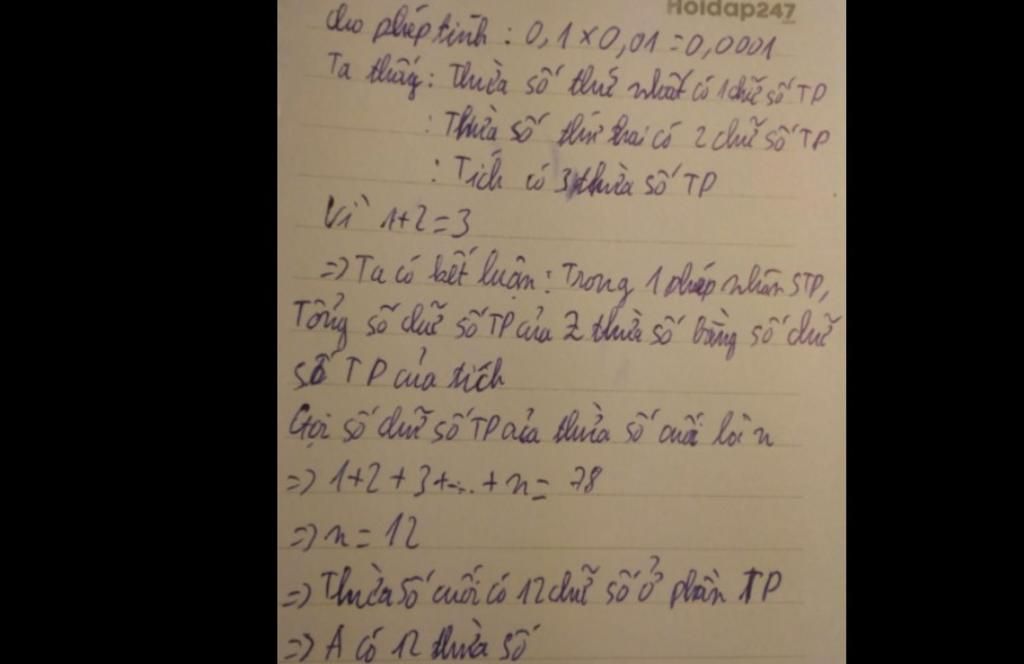 Hoidap247
cho phép tính : 0,1 x 0,01 = 0,0001
Ta thấy : Thừa số thứ nhất có 1 chữ số TP
: Thừa số thứ hai có 2 chữ số TP
: Tích có 3 thừa số TP
Vì 1+2=3
=> Ta có kết luận : Trong 1 phép nhân STP,
Tổng số chữ số TP của 2 thừa số bằng số chữ
số TP của tích
Gọi số chữ số TP của thừa số cuối là n
=> 1+2+3+...+n= 78
=> n = 12
=> Thừa số cuối có 12 chữ số ở phần TP
=> A có 12 thừa số